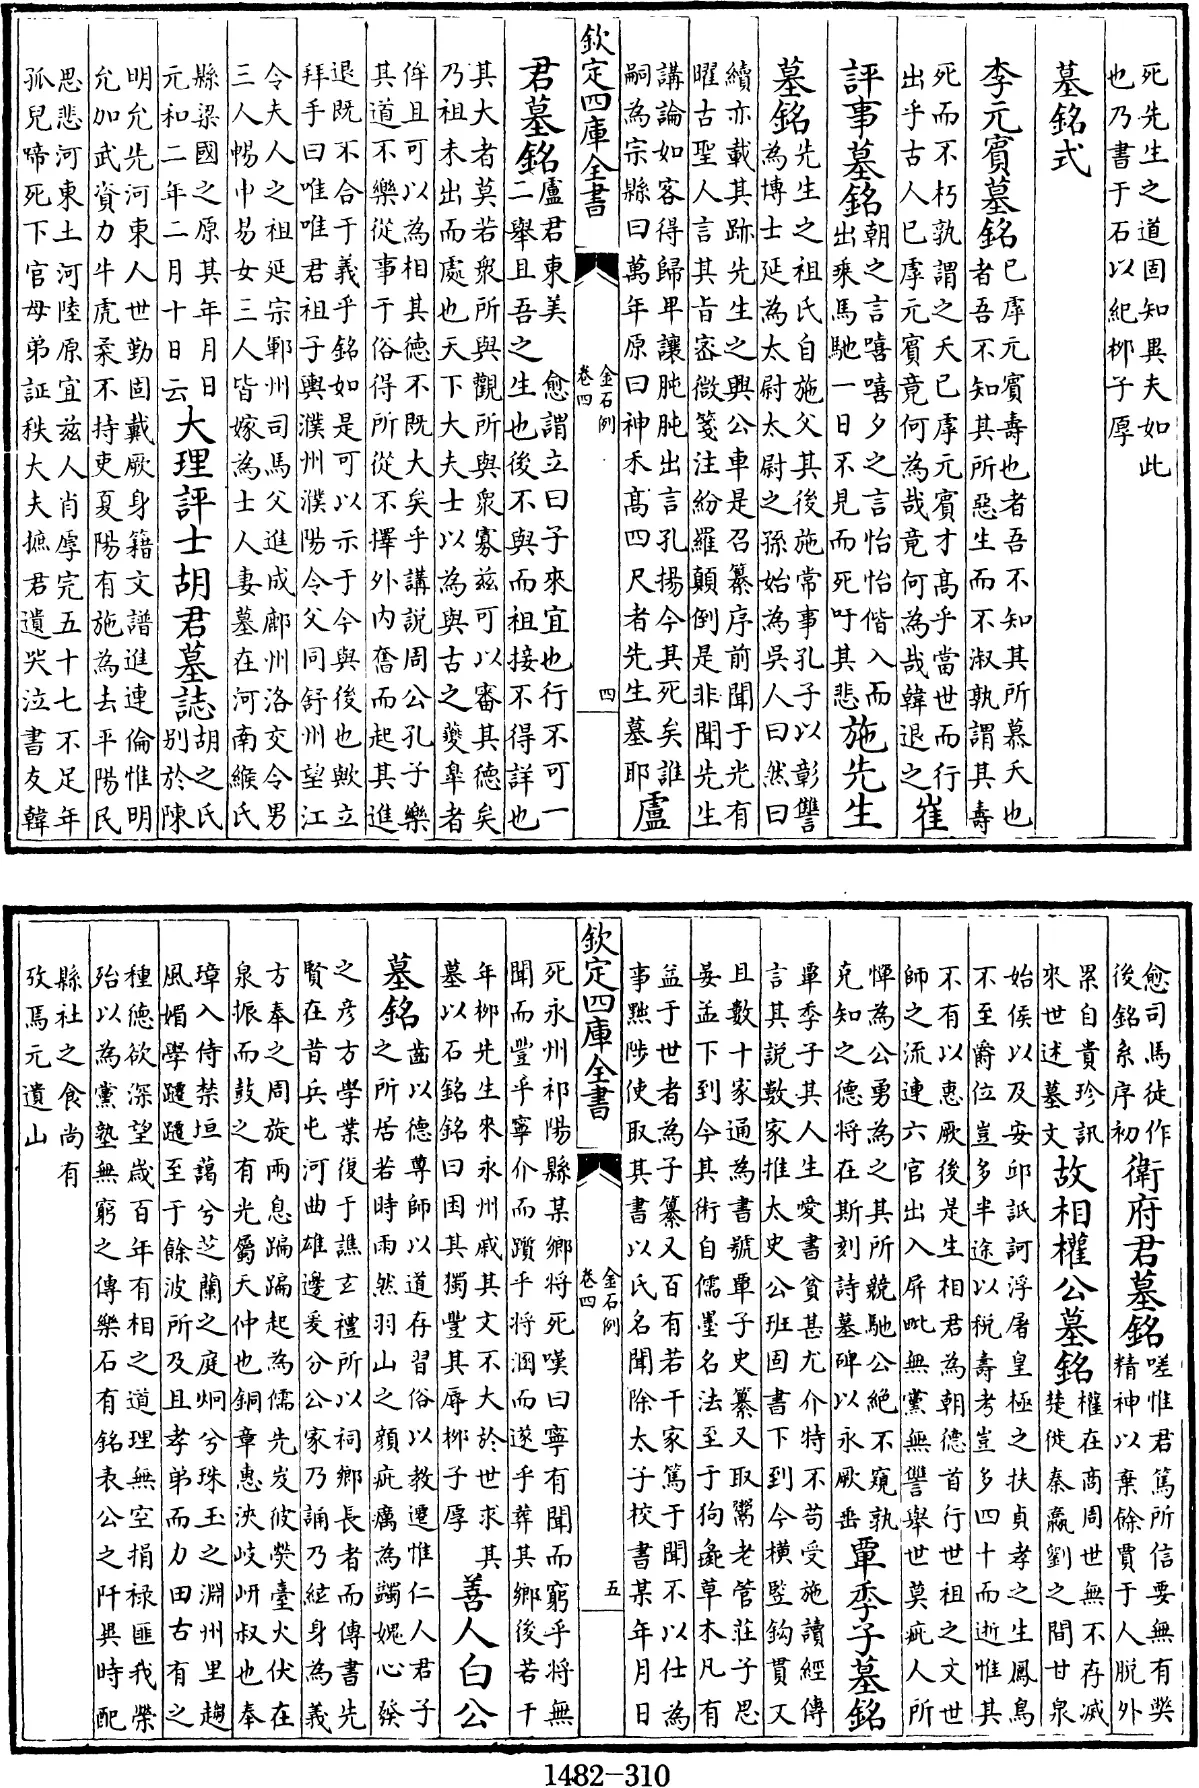 死先生之道固知異夫如此
也乃書于石以紀栁子厚
墓銘式
李元賓墓銘已虖元賓壽也者吾不知其所慕夭也
者吾不知其所惡生而不淑孰謂其壽
死而不朽孰謂之夭已虖元賓才髙乎當世而行
出乎古人已虖元賓竟何為哉竟何為哉韓退之崔
評事墓銘朝之言嘻嘻夕之言怡怡偕入而
出乘馬馳一日不見而死吁其悲施先生
墓銘先生之祖氏自施父其後施常事孔子以彰讐
為博士延為太尉太尉之孫始為吳人曰然曰
續亦載其跡先生之興公車是召纂序前聞于光有
曜古聖人言其旨宻微箋注紛羅顛倒是非聞先生
講論如客得歸卑讓肫肫出言孔揚今其死矣誰
嗣為宗縣曰萬年原曰神禾髙四尺者先生墓耶盧
欽定四庫全書
金石例
卷四
四
君墓銘盧君東美 愈謂立曰子來宜也行不可一
二舉且吾之生也後不與而祖接不得詳也
其大者莫若衆所與觀所與衆寡兹可以審其德矣
乃祖未出而處也天下大夫士以為與古之夔臯者
侔且可以為相其德不既大矣乎講説周公孔子樂
其道不樂從事于俗得所從不擇外内奮而起其進
退既不合于義乎銘如是可以示于今與後也歟立
拜手曰唯唯君祖子輿濮州濮陽令父同舒州望江
令夫人之祖延宗鄆州司馬父進成鄜州洛交令男
三人暢巾易女三人皆嫁為士人妻墓在河南緱氏
縣梁國之原其年月日
元和二年二月十日云大理評士胡君墓誌胡之氏
别於陳
明允先河東人世勤固戴厥身籍文譜進連倫惟明
允加武資力牛虎柔不持吏夏陽有施為去平陽民
思悲河東土河陸原宜兹人肖厚完五十七不足年
孤兒啼死下官母弟証秩大夫摭君遺哭泣書友韓
愈司馬徒作
後銘系序初衛府君墓銘嗟惟君篤所信要無有獘
精神以棄餘賈于人脱外
累自貴珍訊
來世述墓文故相權公墓銘權在商周世無不存滅
楚徙秦嬴劉之間甘泉
始侯以及安邱詆訶浮屠皇極之扶貞孝之生鳳鳥
不至爵位豈多半途以税壽考豈多四十而逝惟其
不有以惠厥後是生相君為朝德首行世祖之文世
師之流連六官出入屏毗無黨無讐舉世莫疵人所
憚為公勇為之其所競馳公絶不窺孰
克知之德將在斯刻詩墓碑以永厥垂覃季子墓銘
覃季子其人生愛書貧甚尤介特不苟受施讀經傳
言其説數家推太史公班固書下到今横竪鈎貫又
且數十家通為書號覃子史纂又取鬻老管莊子思
晏孟下到今其術自儒墨名法至于狗彘草木凡有
益于世者為子纂又百有若干家篤于聞不以仕為
事黜陟使取其書以氏名聞除太子校書某年月日
欽定四庫全書
金石例
卷四
五
死永州祁陽縣某鄉将死嘆曰寧有聞而窮乎将無
聞而豐乎寧介而躓乎将溷而遂乎葬其鄉後若干
年栁先生來永州戚其文不大於世求其
墓以石銘銘曰困其獨豐其辱栁子厚善人白公
墓銘齒以德尊師以道存習俗以教遷惟仁人君子
之所居若時雨然羽山之顔疵癘為蠲媿心發
之彦方學業復于譙𤣥禮所以祠鄉長者而傳書先
賢在昔兵屯河曲雄邊爰分公家乃誦乃絃身為義
方奉之周旋兩息蹁蹁起為儒先炭彼爕臺火伏在
泉振而鼓之有光屬天仲也銅章惠泱岐岍叔也奉
璋入侍禁垣藹兮芝蘭之庭炯兮珠玉之淵州里趨
風媚學躚躚至于餘波所及且孝弟而力田古有之
種德欲深望歲百年有相之道理無空捐禄匪我榮
殆以為黨塾無窮之傳樂石有銘表公之阡異時配
縣社之食尚有
攷焉元遺山
1482-310